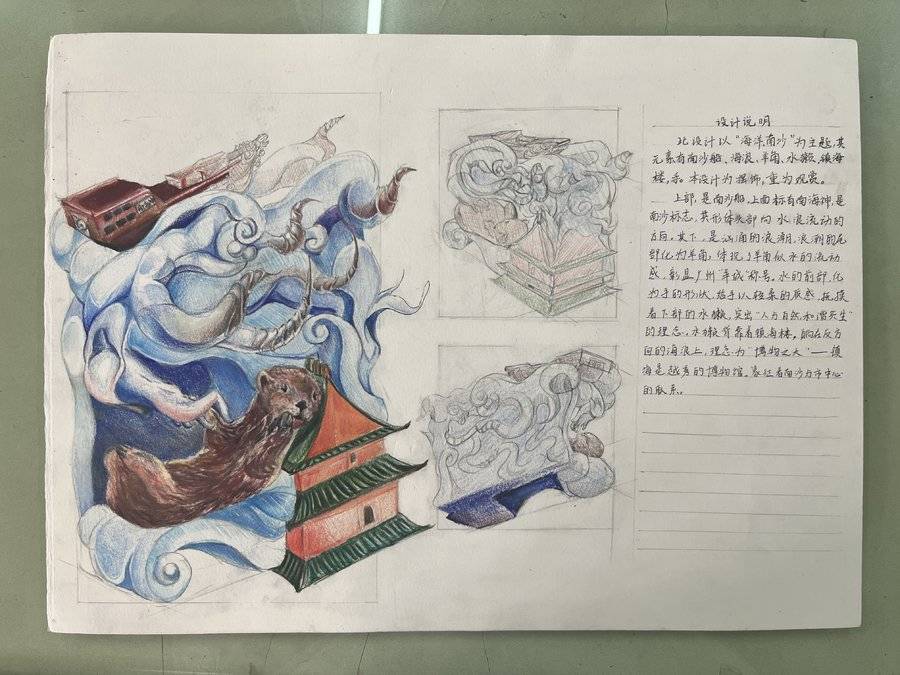 设计说明
此设计以“海洋南沙”为主题,其
元素有南沙船、海浪、羊角、水獭、镇海
楼,手。本设计为摆饰,重为观赏。
上部,是南沙船,上面标有南海神,是
南沙标志,其形体头部向水浪流动的
方向。其下,是汹涌的浪潮,浪潮的尾
部化为羊角,体现了羊角似水的流动
感,彰显广州“羊城”称号,水的前部,化
为手的形状,给予以轻柔的质感,抚摸
着下部的水獭,突出“人与自然,和谐共生”
的理念,水獭背靠着镇海楼。趴在反方
向的海浪上,理念为“博物之大”——镇
海是越秀的博物馆。象征着南沙与市中心
的联系。